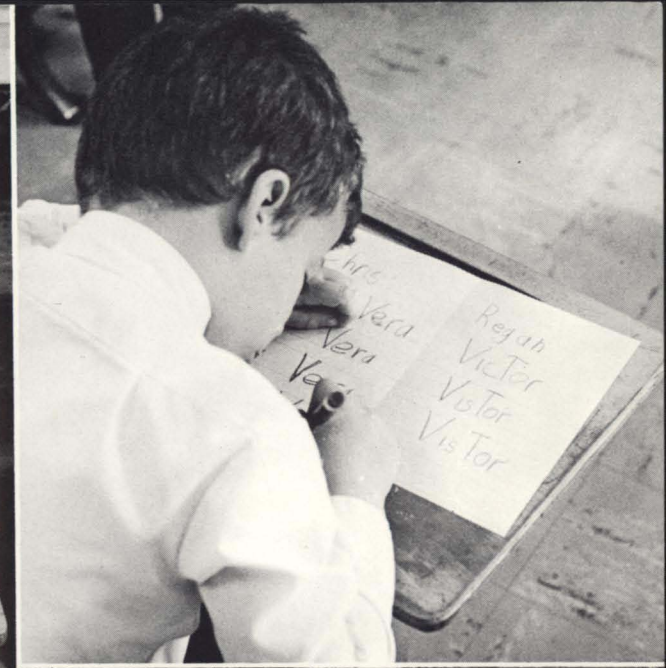 Chris
Vera
Vera
Regan
Victor
Vistor
Vistor